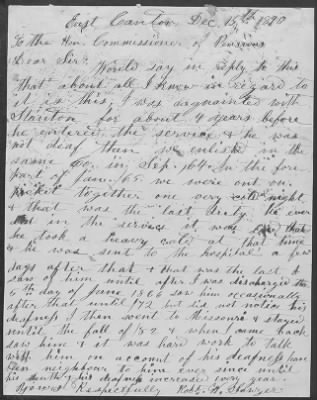 East Canton Dec. 15th 1890
To the Hon. Commissioner of Pensions
Dear Sir Would say in reply to this
that about all I know in regard to
it is this, I was aquainted with
Stanton for about 4 years before
he entered the service & he was
not deaf then we enlisted in the
same Co. in Sep. /64. In the fore
part of Jan. /65. we were out on
picket together one very cold night
& that was the last duty he ever
did in the service it was
he took a heavy cold at that time
& he was sent to the hospital a few
days after that & that was the last I
saw of him until after I was discharged the
6th day of June 1866 saw him occasionally
after that until /72 but did not notice his
deafness I then went to Missouri & stayed
until the fall of /82 & when I came back
saw him & it was hard work to talk
with him on account of his deafness have
been neighbours to him ever since until
his death & his deafness increased every year.
Yours Respectfully Robt. H. Sawyer